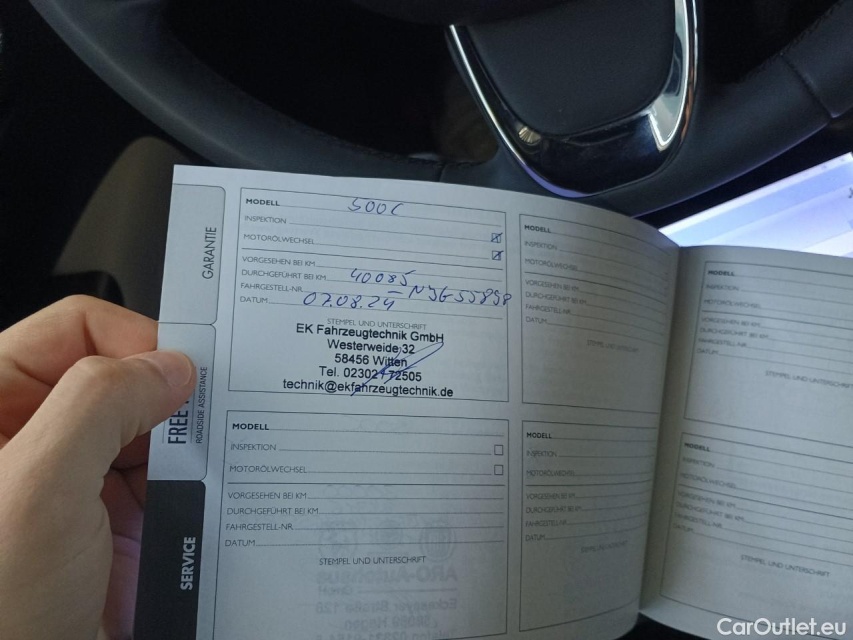 GARANTIE
MODELL 500C
INSPEKTION
MOTORÖLWECHSEL
VORGESEHEN BEI KM
DURCHGEFÜHRT BEI KM 40085
FAHRGESTELL-NR. NJG55898
DATUM 07.08.24
STEMPEL UND UNTERSCHRIFT
EK Fahrzeugtechnik GmbH
Westerweide 32
58456 Witten
Tel. 02302 172505
technik@ekfahrzeugtechnik.de
FREE
ROADSIDE ASSISTANCE
SERVICE
MODELL
INSPEKTION
MOTORÖLWECHSEL
VORGESEHEN BEI KM
DURCHGEFÜHRT BEI KM
FAHRGESTELL-NR.
DATUM
STEMPEL UND UNTERSCHRIFT
MODELL
INSPEKTION
MOTORÖLWECHSEL
VORGESEHEN BEI KM
DURCHGEFÜHRT BEI KM
FAHRGESTELL-NR.
DATUM
STEMPEL UND UNTERSCHRIFT
MODELL
INSPEKTION
MOTORÖLWECHSEL
VORGESEHEN BEI KM
DURCHGEFÜHRT BEI KM
FAHRGESTELL-NR.
DATUM
STEMPEL UND UNTERSCHRIFT
MODELL
INSPEKTION
MOTORÖLWECHSEL
VORGESEHEN BEI KM
DURCHGEFÜHRT BEI KM
FAHRGESTELL-NR.
DATUM
STEMPEL UND UNTERSCHRIFT
MODELL
INSPEKTION
MOTORÖLWECHSEL
VORGESEHEN BEI KM
DURCHGEFÜHRT BEI KM
FAHRGESTELL-NR.
DATUM
STEMPEL UND UNTERSCHRIFT
CarOutlet.eu